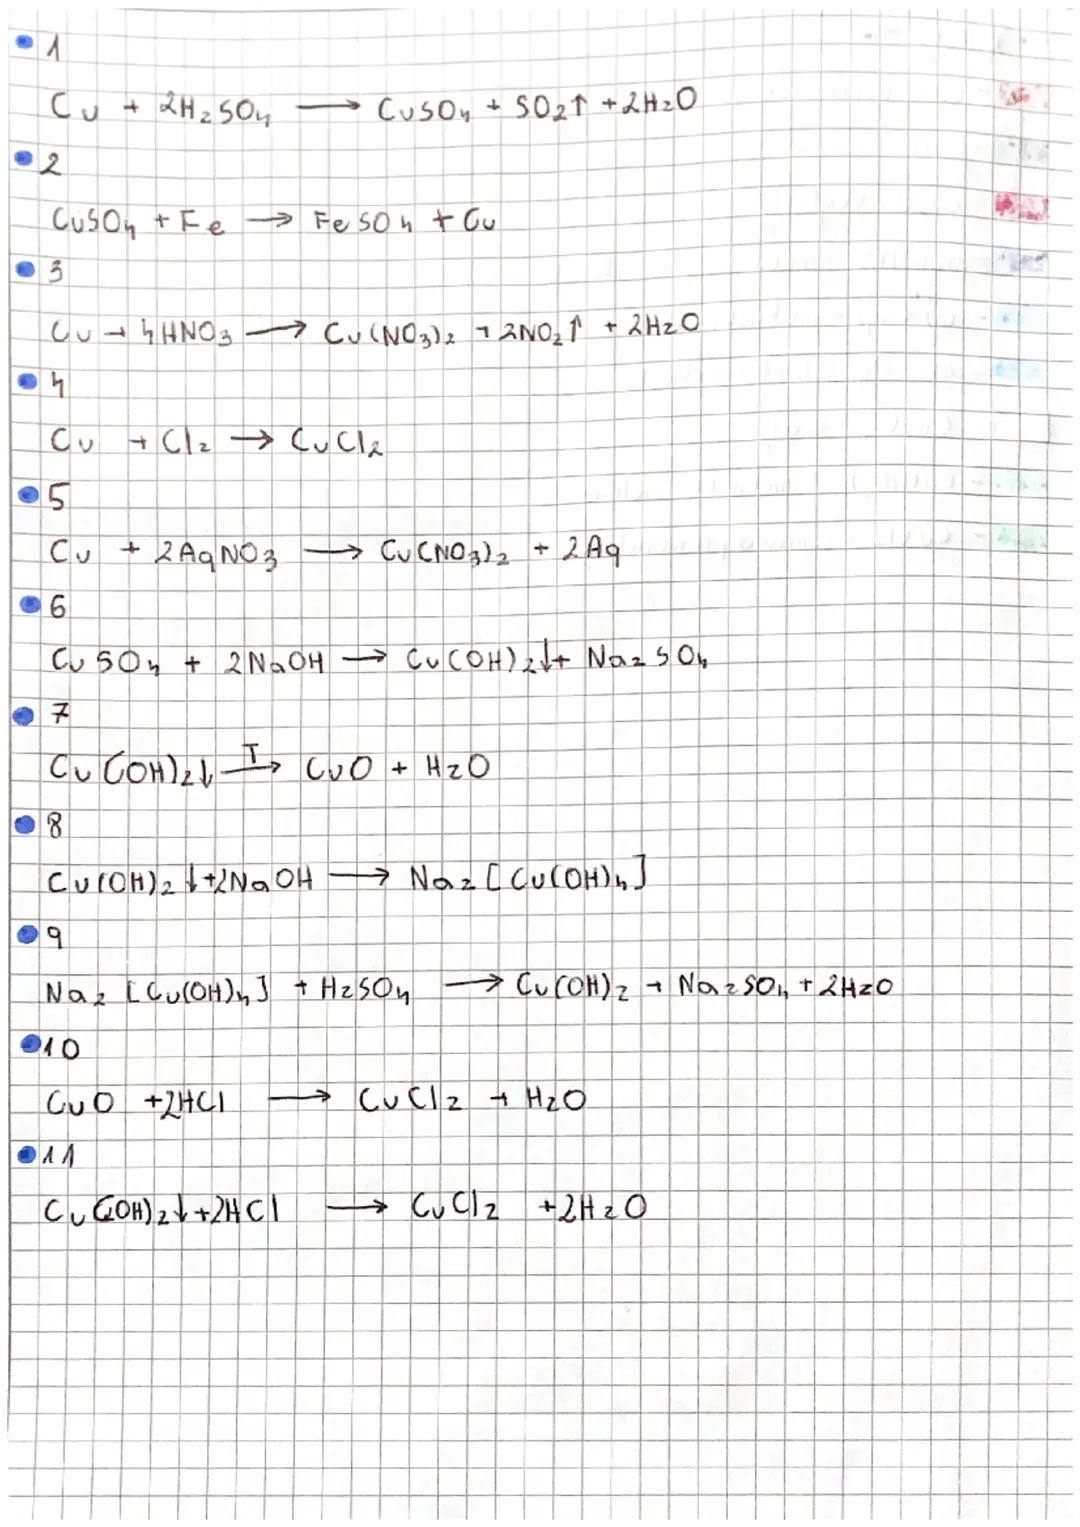 1
Cu + 2H₂SO₄ ⟶ CuSO₄ + SO₂↑ + 2H₂O
2
CuSO₄ + Fe ⟶ FeSO₄ + Cu
3
Cu + 4HNO₃ ⟶ Cu(NO₃)₂ + 2NO₂↑ + 2H₂O
4
Cu + Cl₂ → CuCl₂
5
Cu + 2AgNO₃ ⟶ Cu(NO₃)₂ + 2Ag
6
CuSO₄ + 2NaOH ⟶ Cu(OH)₂↓ + Na₂SO₄
7
Cu(OH)₂↓ —T→ CuO + H₂O
8
Cu(OH)₂↓ + 2NaOH ⟶ Na₂[Cu(OH)₄]
9
Na₂[Cu(OH)₄] + H₂SO₄ ⟶ Cu(OH)₂ + Na₂SO₄ + 2H₂O
10
CuO + 2HCl ⟶ CuCl₂ + H₂O
11
Cu(OH)₂↓ + 2HCl ⟶ CuCl₂ + 2H₂O